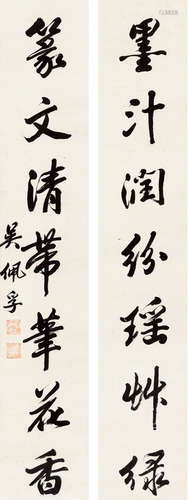 墨汁润纷瑶艸绿
篆文清带笔花香
吴佩孚